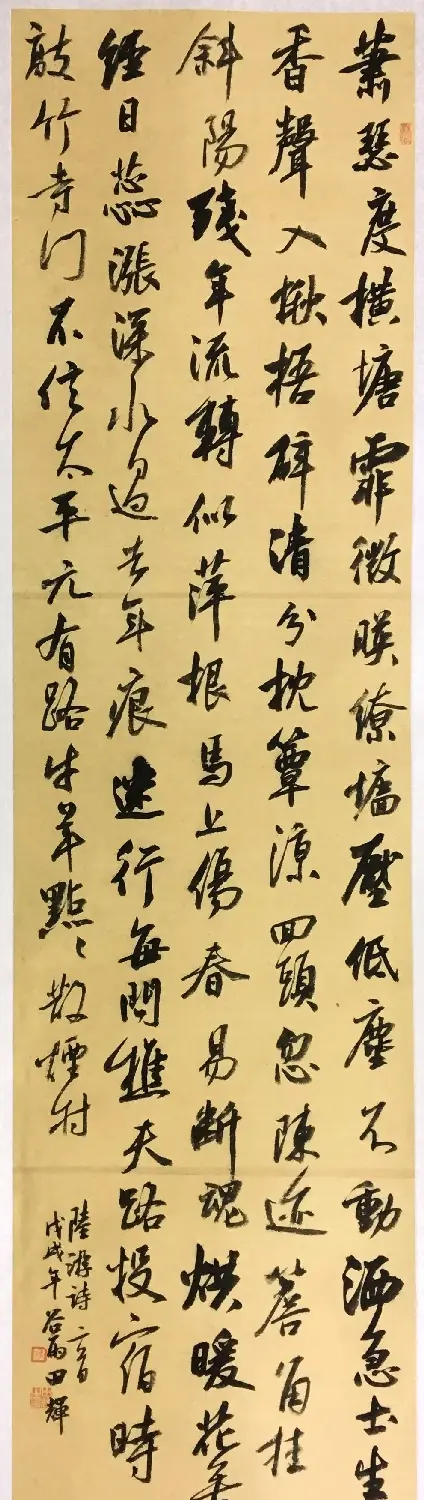 蕭瑟度橫塘霏微映繚墻壓低塵不動洒急土生
香聲入楸梧碎清分枕簟涼回頭忽陳迹簷角挂
斜陽殘年流轉似萍根馬上傷春易斷魂烘暖花
經日蕊漲深水過去年痕迷行每問樵夫路投宿時
敲竹寺門不信太平元有路牛羊點〻散煙村
陸游詩
戊戌年 田輝